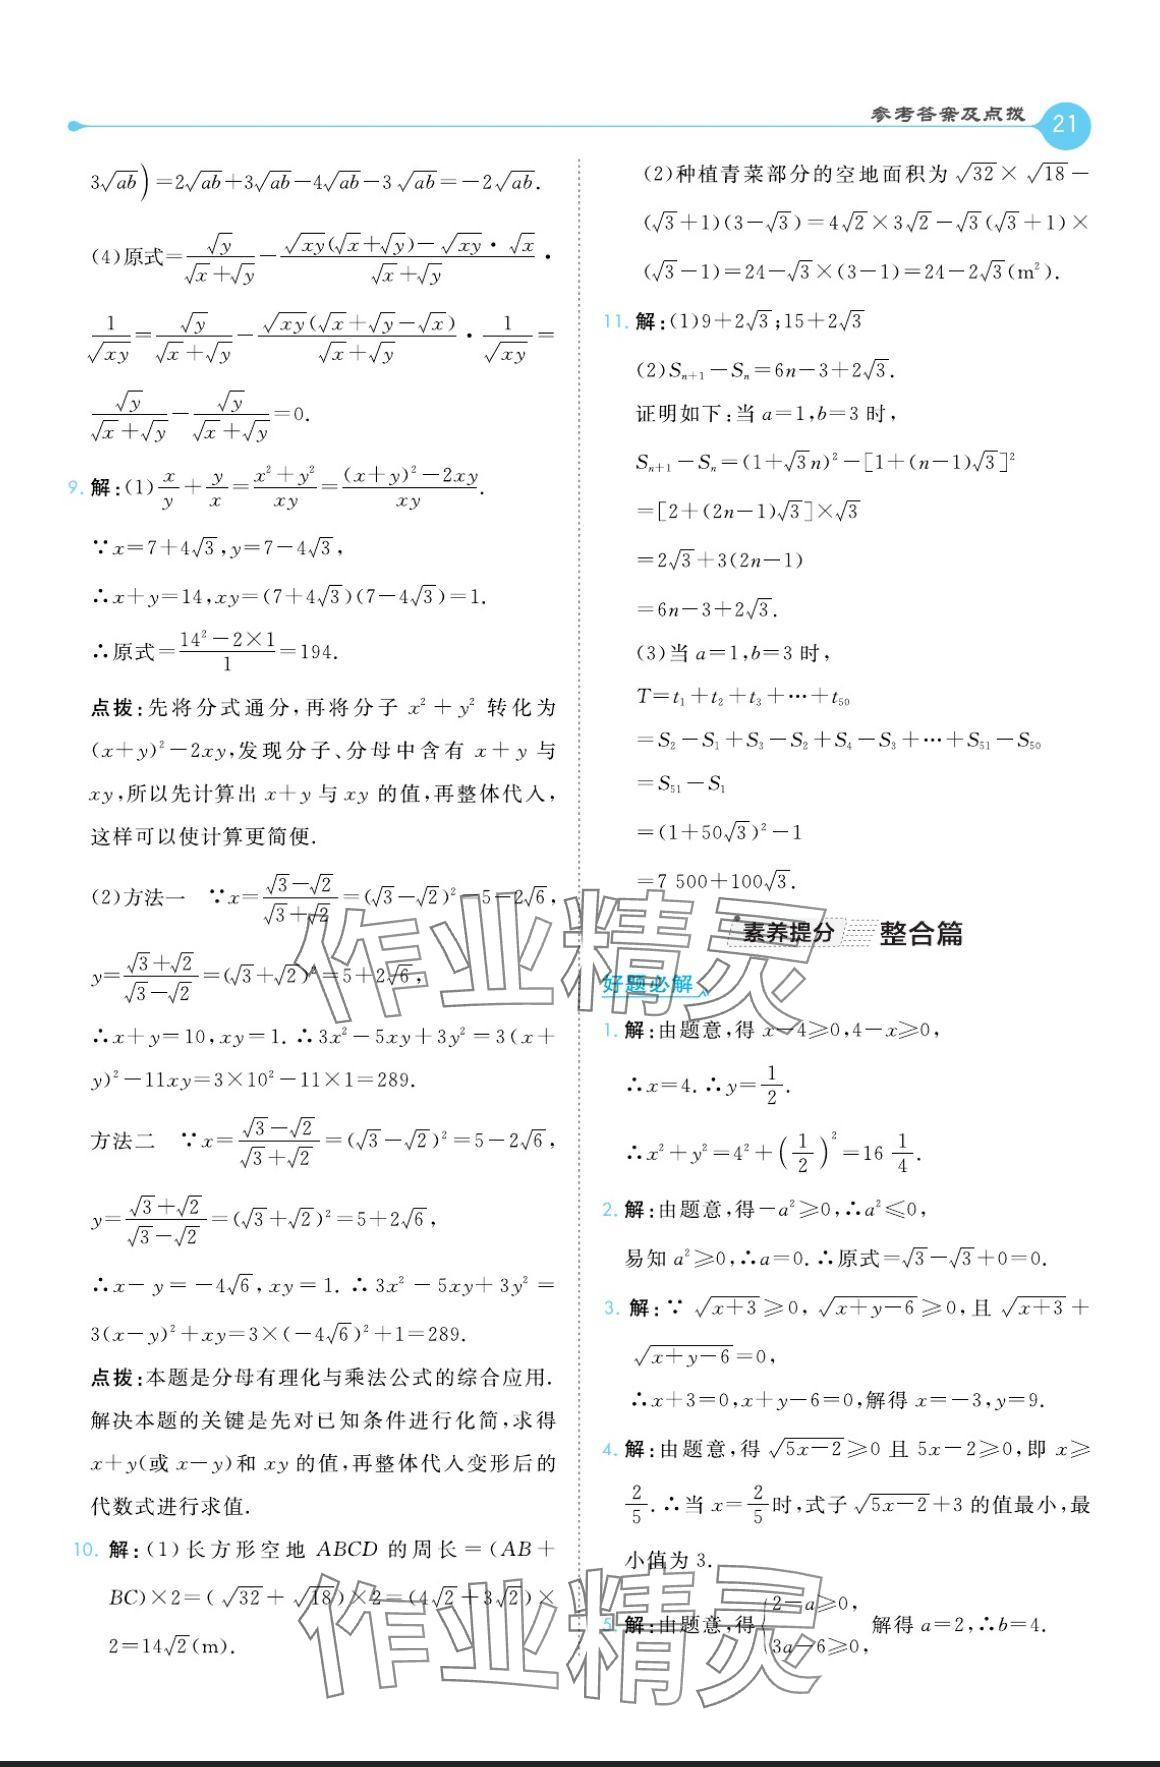 参考答案及点拨 21
3√ab)=2√ab+3√ab-4√ab-3√ab=-2√ab.
(4)原式=√y/(√x+√y)-(√xy(√x+√y)-√xy·√x)/(√x+√y)·
1/√xy=√y/(√x+√y)-√xy(√x+√y-√x)/(√x+√y)·1/√xy=
√y/(√x+√y)-√y/(√x+√y)=0.
9. 解:(1)x/y+y/x=(x²+y²)/xy=((x+y)²-2xy)/xy.
∵x=7+4√3,y=7-4√3,
∴x+y=14,xy=(7+4√3)(7-4√3)=1.
∴原式=(14²-2×1)/1=194.
点拨:先将分式通分,再将分子 x²+y² 转化为
(x+y)²-2xy,发现分子、分母中含有 x+y 与
xy,所以先计算出 x+y 与 xy 的值,再整体代入,
这样可以使计算更简便.
(2)方法一 ∵x=(√3-√2)/(√3+√2)=(√3-√2)²=5-2√6,
y=(√3+√2)/(√3-√2)=(√3+√2)²=5+2√6,
∴x+y=10,xy=1.∴3x²-5xy+3y²=3(x+
y)²-11xy=3×10²-11×1=289.
方法二 ∵x=(√3-√2)/(√3+√2)=(√3-√2)²=5-2√6,
y=(√3+√2)/(√3-√2)=(√3+√2)²=5+2√6,
∴x-y=-4√6,xy=1.∴3x²-5xy+3y²=
3(x-y)²+xy=3×(-4√6)²+1=289.
点拨:本题是分母有理化与乘法公式的综合应用.
解决本题的关键是先对已知条件进行化简,求得
x+y(或 x-y)和 xy 的值,再整体代入变形后的
代数式进行求值.
10. 解:(1)长方形空地 ABCD 的周长=(AB+
BC)×2=(√32+√18)×2=(4√2+3√2)×
2=14√2(m).
(2)种植青菜部分的空地面积为 √32×√18-
(√3+1)(3-√3)=4√2×3√2-√3(√3+1)×
(√3-1)=24-√3×(3-1)=24-2√3(m²).
11. 解:(1)9+2√3;15+2√3
(2)Sₙ₊₁-Sₙ=6n-3+2√3.
证明如下:当 a=1,b=3 时,
Sₙ₊₁-Sₙ=(1+√3n)²-[1+(n-1)√3]²
=[2+(2n-1)√3]×√3
=2√3+3(2n-1)
=6n-3+2√3.
(3)当 a=1,b=3 时,
T=t₁+t₂+t₃+…+t₅₀
=S₂-S₁+S₃-S₂+S₄-S₃+…+S₅₁-S₅₀
=S₅₁-S₁
=(1+50√3)²-1
=7 500+100√3.
素养提分 整合篇
好题必解
1. 解:由题意,得 x-4≥0,4-x≥0,
∴x=4.∴y=1/2.
∴x²+y²=4²+(1/2)²=16 1/4.
2. 解:由题意,得-a²≥0,∴a²≤0,
易知 a²≥0,∴a=0.∴原式=√3-√3+0=0.
3. 解:∵√x+3≥0,√x+y-6≥0,且√x+3+
√x+y-6=0,
∴x+3=0,x+y-6=0,解得 x=-3,y=9.
4. 解:由题意,得√5x-2≥0 且 5x-2≥0,即 x≥
2/5.∴当 x=2/5时,式子√5x-2+3 的值最小,最
小值为 3.
5. 解:由题意,得{2-a≥0, 3a-6≥0, 解得 a=2,∴b=4.
作业精灵
作业精灵